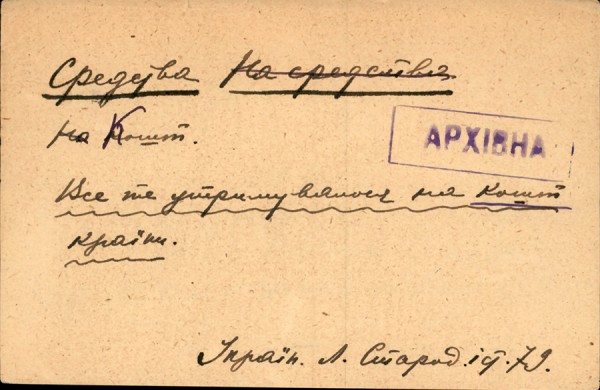 Средства На средства
на Кошт.
АРХІВНА
Все те утримувалося на кошт
країни.
Л. Старод. 79.